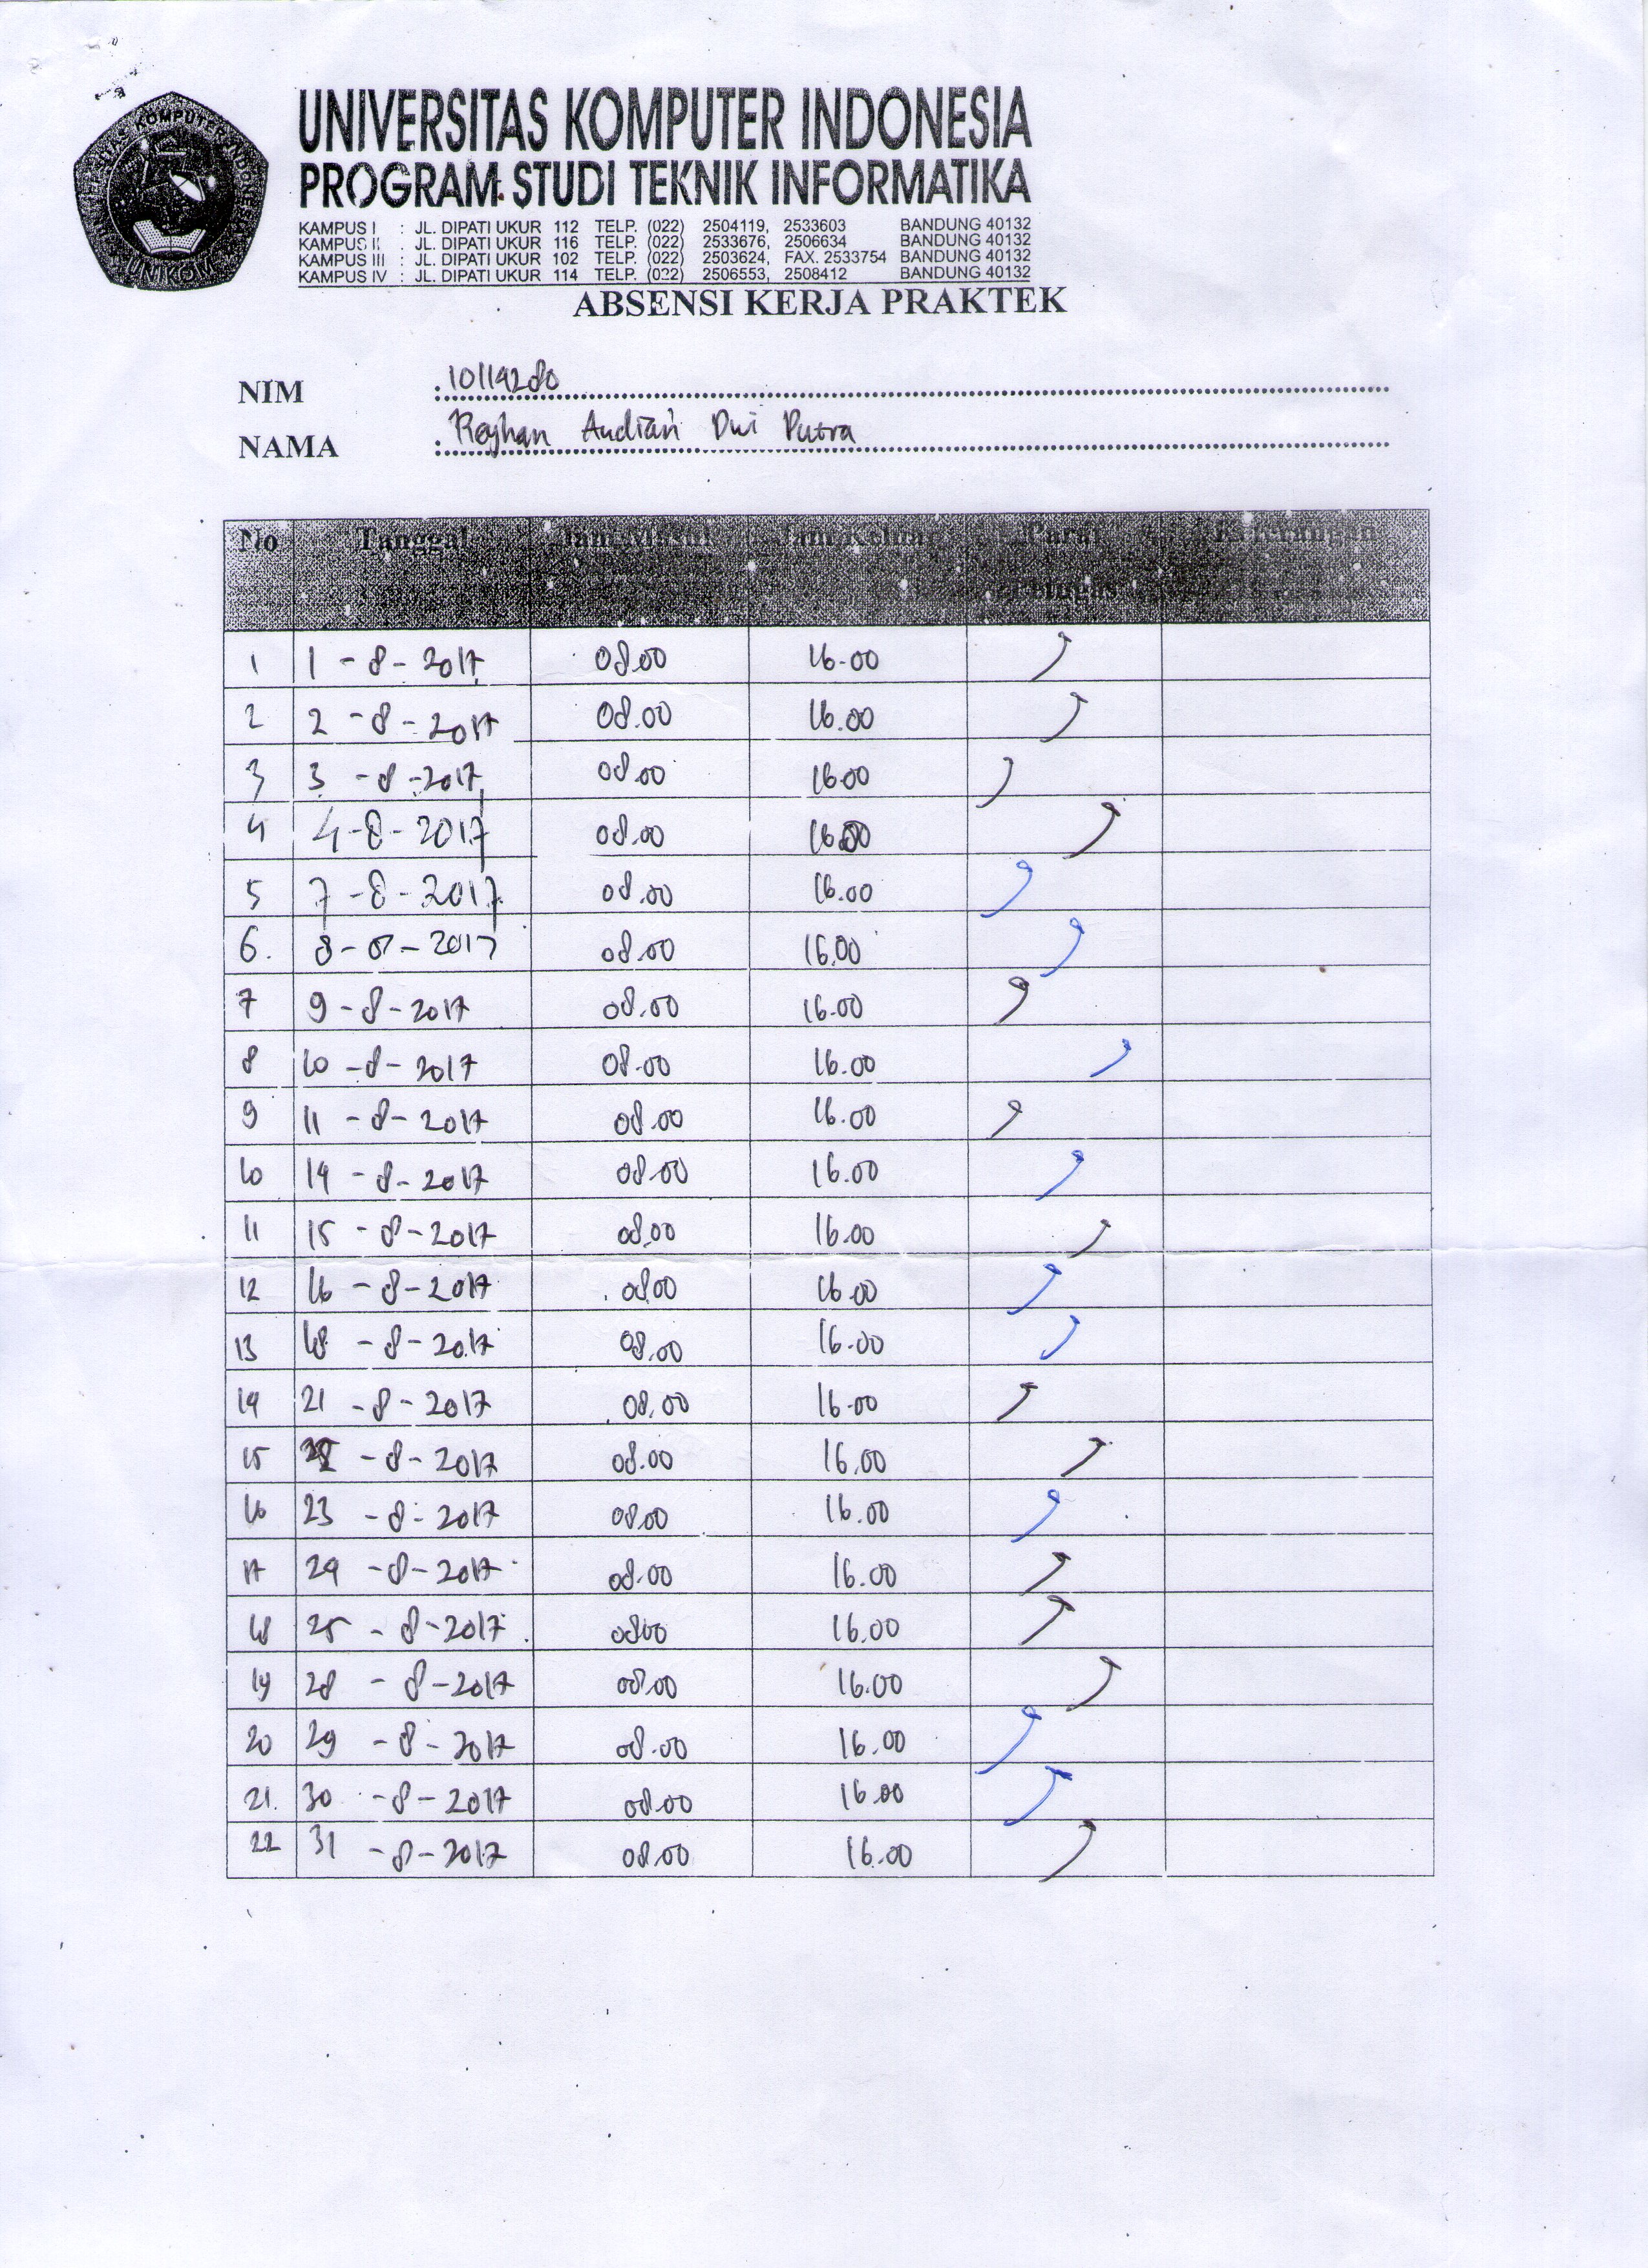 UNIVERSITAS KOMPUTER INDONESIA
PROGRAM STUDI TEKNIK INFORMATIKA
KAMPUS I : JL. DIPATI UKUR 112 TELP. (022) 2504119, 2533603 BANDUNG 40132
KAMPUS II : JL. DIPATI UKUR 116 TELP. (022) 2533676, 2506634 BANDUNG 40132
KAMPUS III : JL. DIPATI UKUR 102 TELP. (022) 2503624, FAX. 2533754 BANDUNG 40132
KAMPUS IV : JL. DIPATI UKUR 114 TELP. (022) 2506553, 2508412 BANDUNG 40132
UNIKOM
ABSENSI KERJA PRAKTEK
NIM 10114280
NAMA Reyhan Audian Dwi Putra
No Tanggal Jam Masuk Jam Keluar Paraf Keterangan
Petugas
1 1-8-2017 08.00 16-00
2 2-8-2017 08.00 16.00
3 3-8-2017 08.00 16.00
4 4-8-2017 08.00 16.00
5 7-8-2017 08.00 16.00
6. 8-8-2017 08.00 16.00
7 9-8-2017 08.00 16.00
8 10-8-2017 08.00 16.00
9 11-8-2017 08.00 16.00
10 14-8-2017 08.00 16.00
11 15-8-2017 08.00 16.00
12 16-8-2017 08.00 16.00
13 18-8-2017 08.00 16.00
14 21-8-2017 08.00 16.00
15 22-8-2017 08.00 16.00
16 23-8-2017 08.00 16.00
17 24-8-2017 08.00 16.00
18 25-8-2017 08.00 16.00
19 28-8-2017 08.00 16.00
20 29-8-2017 08.00 16.00
21. 30-8-2017 08.00 16.00
22 31-8-2017 08.00 16.00